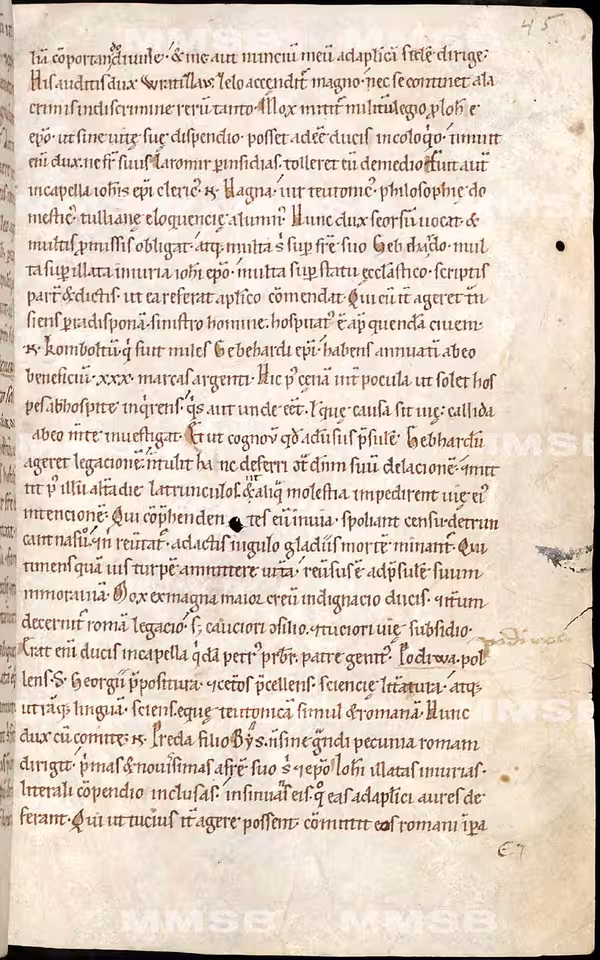 45
liā cōportandi uiule· & me aut nunciū meū ad aplicā sedē dirige·
His auditis dux wratizlaw, zelo accendit͛ magno· nec se continet ala
crimis in discrimine rerū tanto· Mox mittit militū legio ꝓ Ioħ e
ep̄o· ut sine uitę suę dispendio· posset ad eē ducis in coloq̄o· timuit
eni dux· ne fr̄ suus Iaromir ꝑ insidias· tolleret eū de medio· Fuit aut̄
in capella ioħis ep̄i cleric᷒· ꞃ· Hagna· uir teutonic᷒· philosophię do
mestic᷒· tullianę eloquencię alumn᷒· Hunc dux seorsū uocat· &
multis ꝓmissis obligat· atq; multa s̄ sup fr̄e suo Gebehardo· mul
ta sup illata iniuria ioħi ep̄o· multa sup statu ęccl̄astico· scriptis
part̄ & dictis· ut ea referat ap̄lico cōmendat· Qui cū it̄ ageret trā
siens ꝑ radisponā· sinistro homine· hospitat᷒ ē ap̄ quendā ciuem·
ꞃ· Komboltū· q̄ fuit miles Gebehardi ep̄i· habens annuatī ab eo
beneficiū· xxx· marcas argenti· Hic p᷒ cenā int̄ pocula ut solet hos
pes ab hospite inq̄rens· q̄s aut unde eēt· ł quę causa sit uię· callida
ab eo m̄te inuestigat· Et ut cognou̇ qd̄ aduersus p̄sulē Gebhardū
ageret legacionē· n̄ tulit hanc deferri ōt̄ dn̄m suū delacionē· mit
tit p᷒ illū alt̄a die latrunculos· ut & aliq̄ molestia impedirent uię ei᷒
intencionē· Qui cōp̄henden tes eū in uia· spoliant censu· detrun
cant nasū· in reūtat᷒· adactis iugulo gladiis mortē minant͛· Qui
timens quā uis turpē amittere uitā· reūsus ē ad p̄sulē suum
in morauiā· Mox ex magna maior creū indignacio ducis· itum
decernit͛ romā legacio· s; cauciori cōsilio· & tuciori uię subsidio·
Erat eni ducis in capella q̄dā petr᷒ pr̄br· patre genit᷒· Podiwa· pol
podiwa
lens· S· Georgii p̄positura· & cet̄os p̄cellens· sciencię litt̄atura· atq;
utrāq; linguā· sciens eque teutonicā simul & romanā· Hunc
dux cū comite· ꞃ· Preda filio Bÿs· n̄ sine g̃ndi pecunia romam
dirigit· p̄mas & nouissimas a fr̄e suo s̄ & ep̄o Ioħi illatas iniurias·
literali cōpendio inclusas· insinuās eis· q᷒ eas ad ap̄lici aures de
ferant· Qui ut tucius it̄ agere possent· cōmittit eos romani īpa